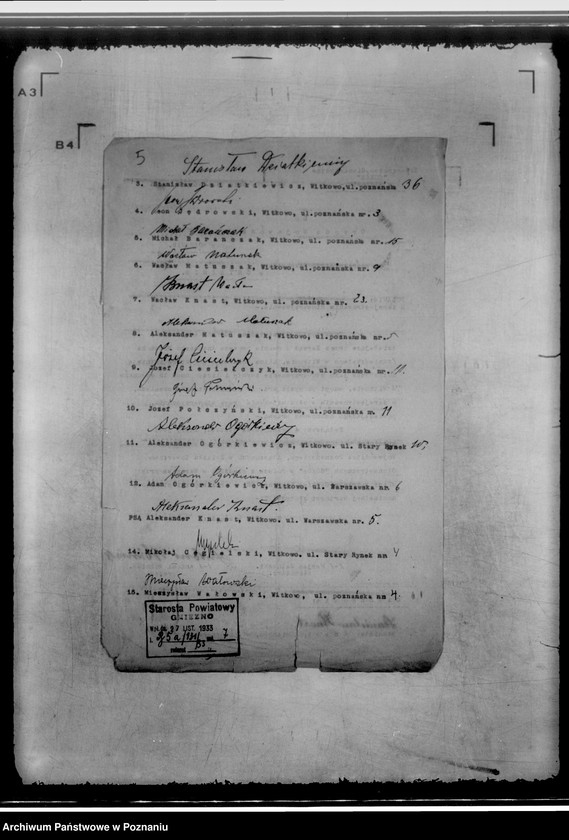 A3
B4
5
Stanisław Dziatkiewicz
3. Stanisław Dziatkiewicz, Witkowo, ul.poznańska 36
4. Leon Będrowski, Witkowo, ul.poznańska nr. 3
Michał Barańczak
5. Michał Barańczak, Witkowo, ul. poznańska nr. 15
Wacław Matuszak
6. Wacław Matuszak, Witkowo, ul.poznańska nr. 9
Knast
7. Wacław Knast, Witkowo, ul. poznańska nr. 23.
Aleksander Matuszak
8. Aleksander Matuszak, Witkowo, ul.poznańska nr.
Józef Cieścielczyk
9. Józef Ciesielczyk, Witkowo, ul.poznańska nr. 11.
Józef
10. Józef Połczyński, Witkowo, ul.poznańska nr. 11
Aleksander Ogórkiewicz
11. Aleksander Ogórkiewicz, Witkowo. ul. Stary Rynek
Adam Ogórkiewicz
12. Adam Ogórkiewicz, Witkowo, ul. Warszawska nr 6
Aleksander Knast.
Aleksander Knast, Witkowo. ul. Warszawska nr. 5.
14. Mikołaj Cegielski, Witkowo. ul. Stary Rynek nr 4
Mieczysław Wałowski
15. Mieczysław Wałowski, Witkowo, ul. poznańska nr 4.
Starosta Powiatowy
GNIEZNO
27 LIST. 1933
Archiwum Państwowe w Poznaniu